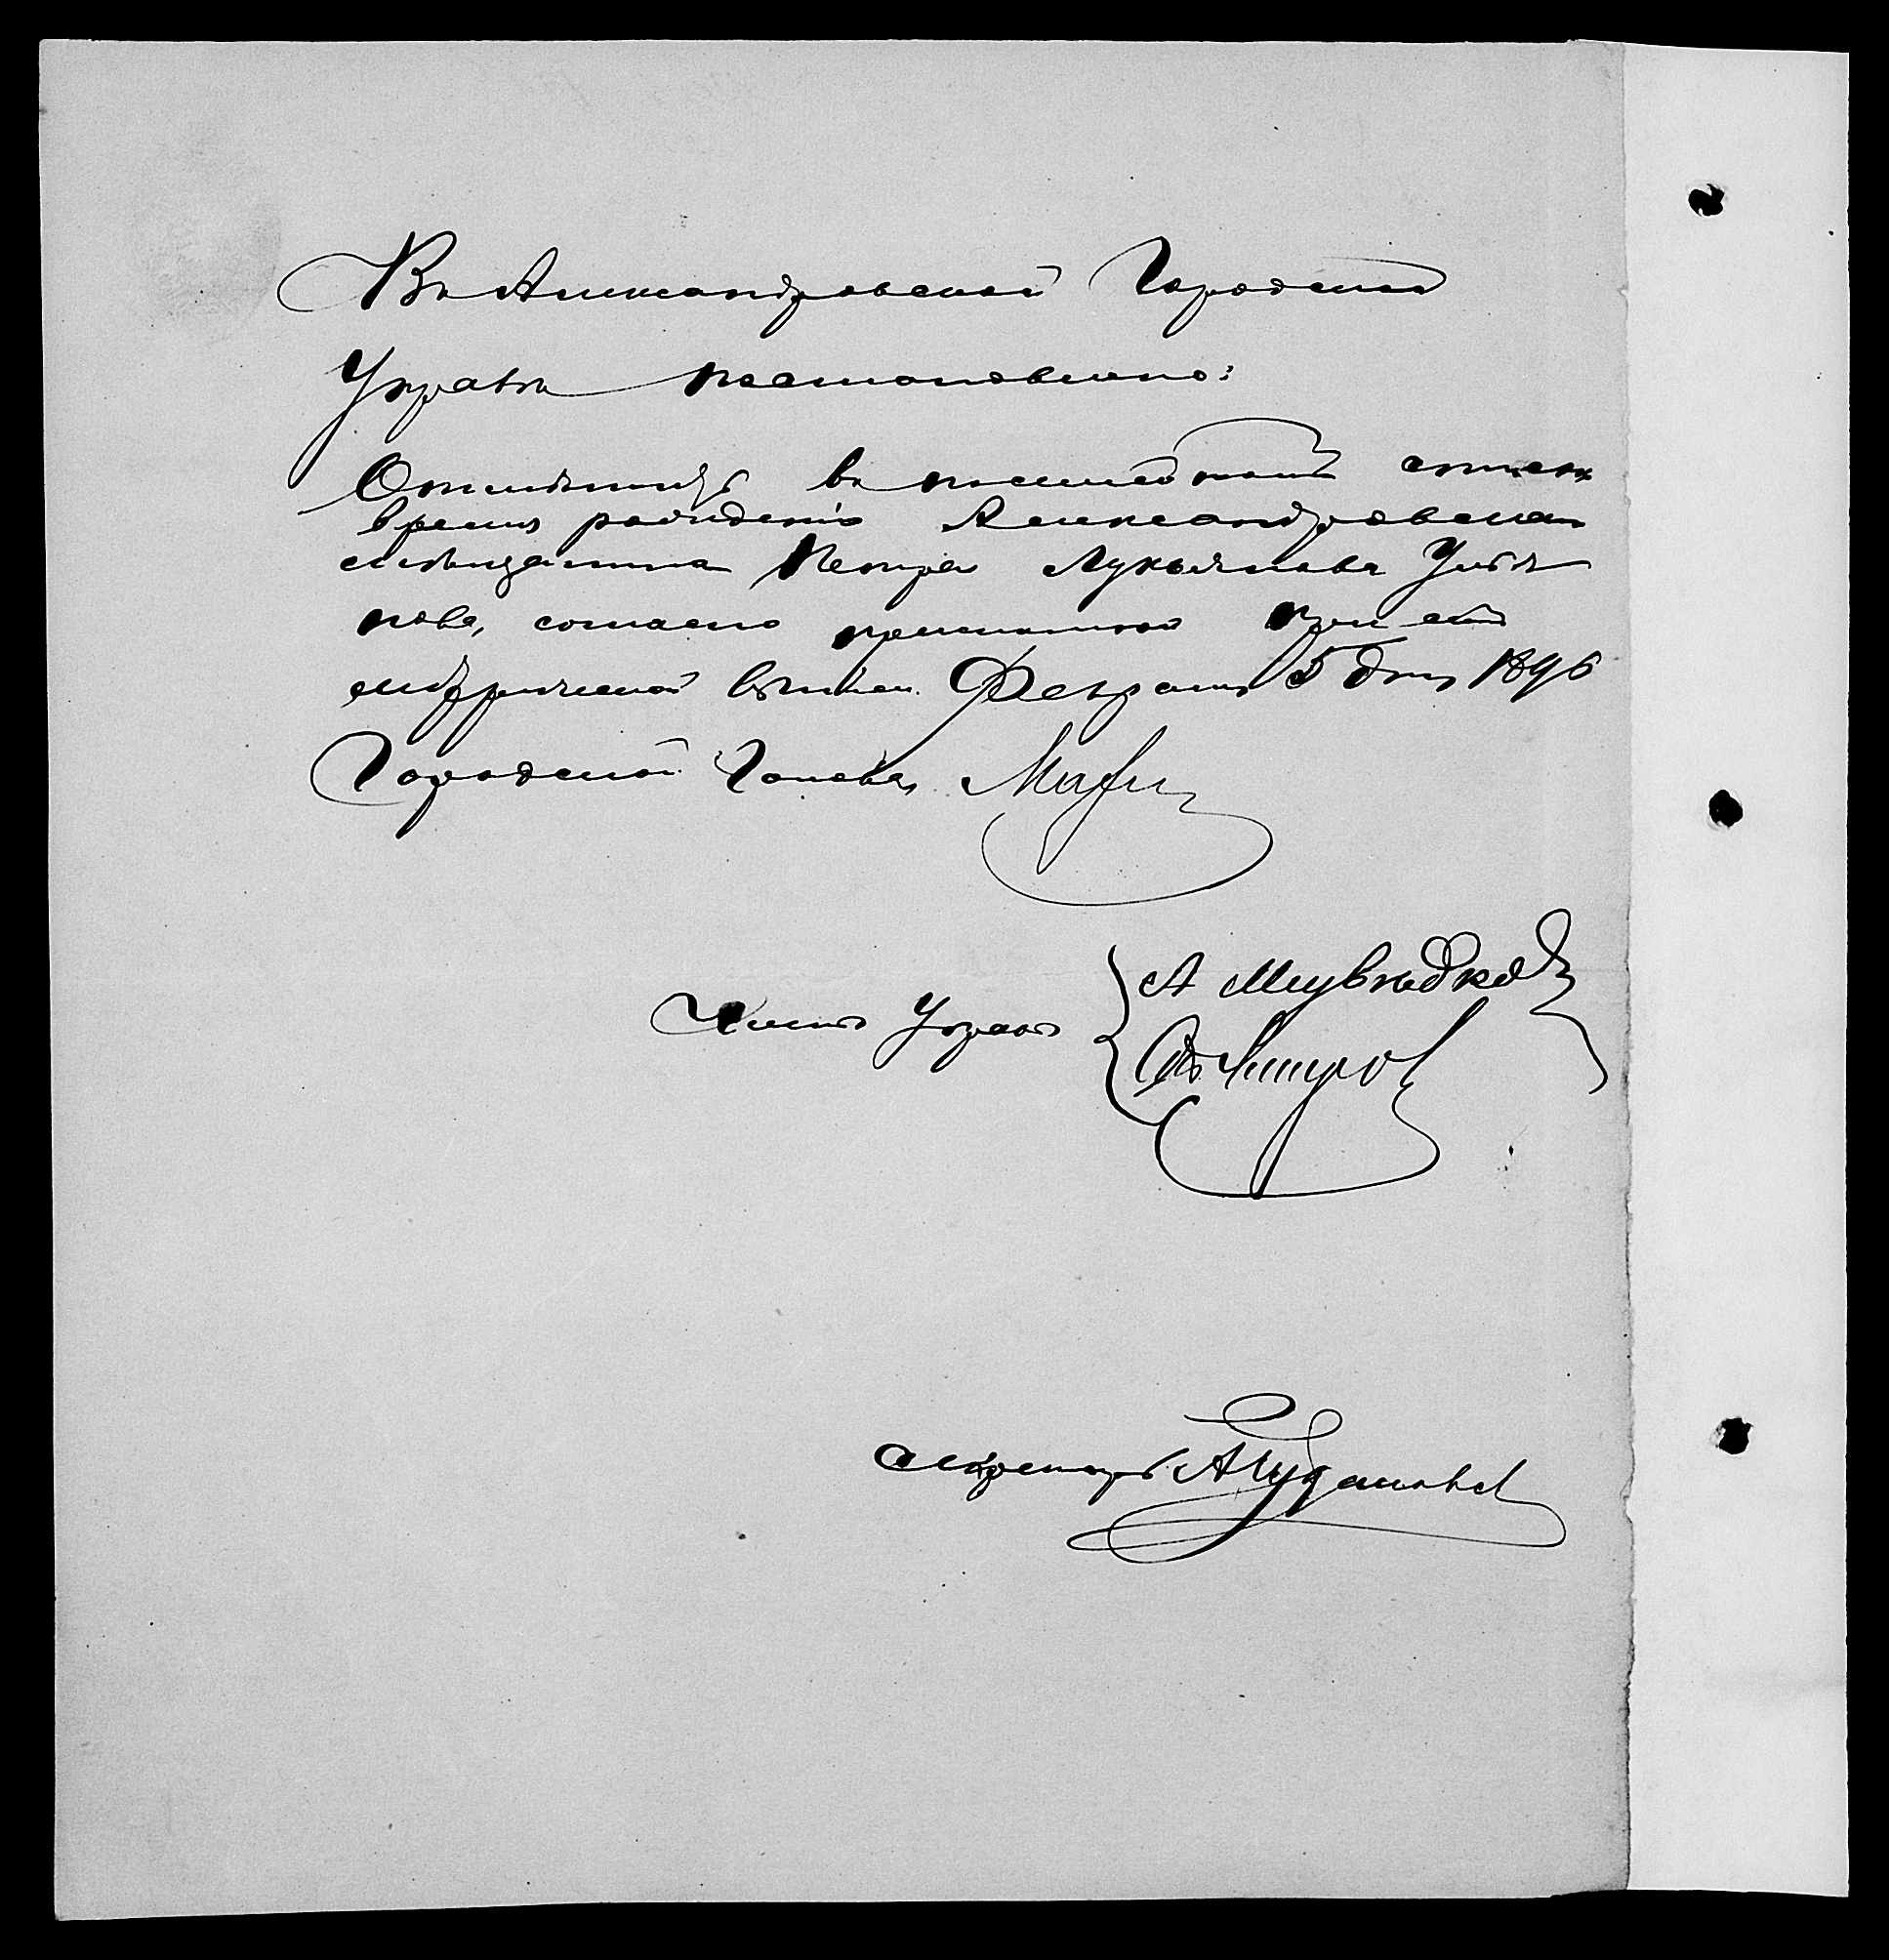 Въ Александровской Городской
Управѣ постановлено:
Отмѣтить въ посемейномъ спискѣ
время рожденія Александровскаго
мѣщанина Петра Лукьянова Улья
нова, согласно при семъ
метрической выписи. Февраля 5 дня 1896
Городской Голова
Члены Управы { А
Секретарь А